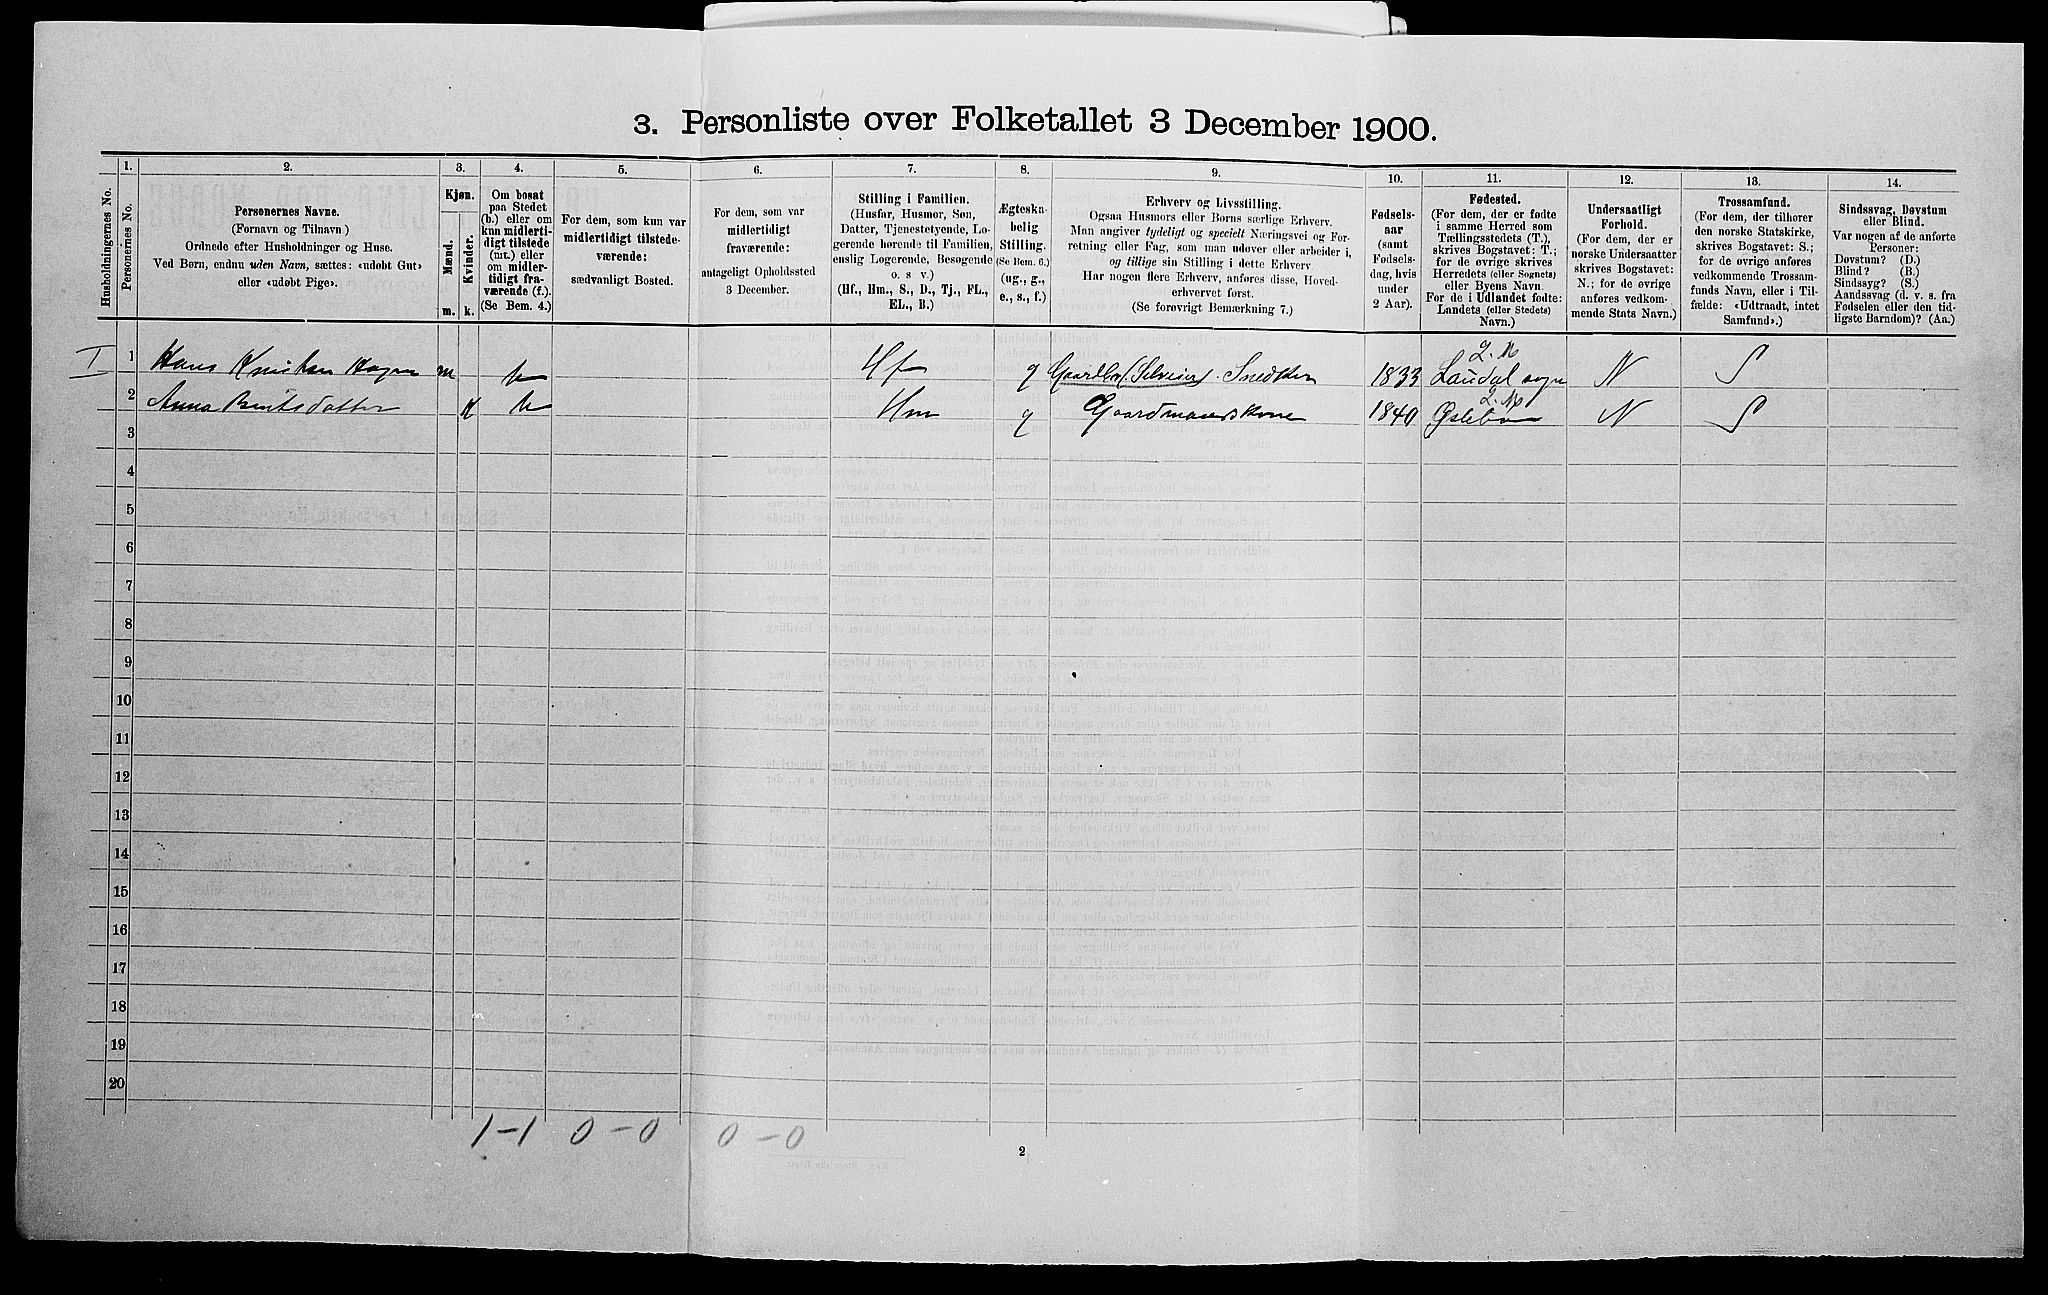 3. Personliste over Folketallet 3 December 1900.
Husholdningernes No.
1.
Personernes No.
2.
Personernes Navne.
(Fornavn og Tilnavn)
Ordnede efter Husholdninger og Huse.
Ved Børn, endnu uden Navn, sættes: «udøbt Gut»
eller «udøbt Pige».
3.
Kjøn.
Mænd.
Kvinder.
m. k.
4.
Om bosat
paa Stedet
(b.) eller om
kun midlerti-
digt tilstede
(mt.) eller
om midler-
tidigt fra-
værende (f.).
(Se Bem. 4.)
5.
For dem, som kun var
midlertidigt tilstede-
værende:
sædvanligt Bosted.
6.
For dem, som var
midlertidigt
fraværende:
antageligt Opholdssted
3 December.
7.
Stilling i Familien.
(Husfar, Husmor, Søn,
Datter, Tjenestetyende, Lo-
gerende hørende til Familien,
enslig Logerende, Besøgende
o. s v.)
(Hf., Hm., S., D., Tj., FL.,
EL., B.)
8.
Ægteska-
belig
Stilling.
(Se Bem. 6.)
(ug., g.,
e., s., f.)
9.
Erhverv og Livsstilling.
Ogsaa Husmors eller Børns særlige Erhverv.
Man angiver tydeligt og specielt Næringsvei og For-
retning eller Fag, som man udover eller arbeider i,
og tillige sin Stilling i dette Erhverv.
Har nogen flere Erhverv, anføres disse, Hoved-
erhvervet først.
(Se forøvrigt Bemærkning 7.)
10.
Fødsels-
aar
(samt
Fødsels-
dag, hvis
under
2 Aar).
11.
Fødested.
(For dem, der er fødte
i samme Herred som
Tællingsstedets (T.),
skrives Bogstavet: T.;
for de øvrige skrives
Herredets (eller Sognets)
eller Byens Navn.
For de i Udlandet fødte:
Landets (eller Stedets)
Navn.)
12.
Undersaatligt
Forhold.
(For dem, der er
norske Undersaatter
skrives Bogstavet:
N.; for de øvrige
anføres vedkom-
mende Stats Navn.)
13.
Trossamfund.
(For dem, der tilhører
den norske Statskirke,
skrives Bogstavet: S.;
for de øvrige anføres
vedkommende Trossam-
funds Navn, eller i Til-
fælde: «Udtraadt, intet
Samfund».)
14.
Sindssvag, Døvstum
eller Blind.
Var nogen af de anførte
Personer:
Døvstum? (D.)
Blind? (B.)
Sindssyg? (S.)
Aandssvag (d. v. s. fra
Fødselen eller den tid-
ligste Barndom)? (Aa.)
I 1 Hans m b Hf g Gaardbr (Selveier). Snedker 1833 L. M Laudal sogn N S
2 Anna Berntsdatter k b Hm g Gaardmandskone 1840 L. M Øslebø N S
3
4
5
6
7
8
9
10
11
12
13
14
15
16
17
18
19
20
1-1 0-0 0-0
2